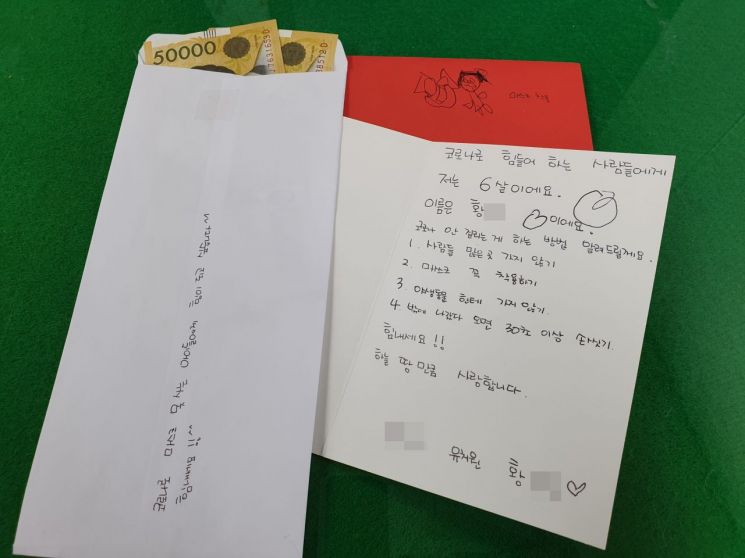 50000
마스크
코로나로 힘들어 하는 사람들에게
저는 6살이에요.
이름은 황 이에요.
코로나 안 걸리는 게 하는 방법 알려드릴게요.
1. 사람들 많은 곳 가지 않기
2. 마스크 꼭 착용하기
3. 야생동물 한테 가지 않기.
4. 밖에 나갔다 오면 30초 이상 손씻기.
힘내세요!!
하늘 땅 만큼 사랑합니다.
유치원 황 ♡